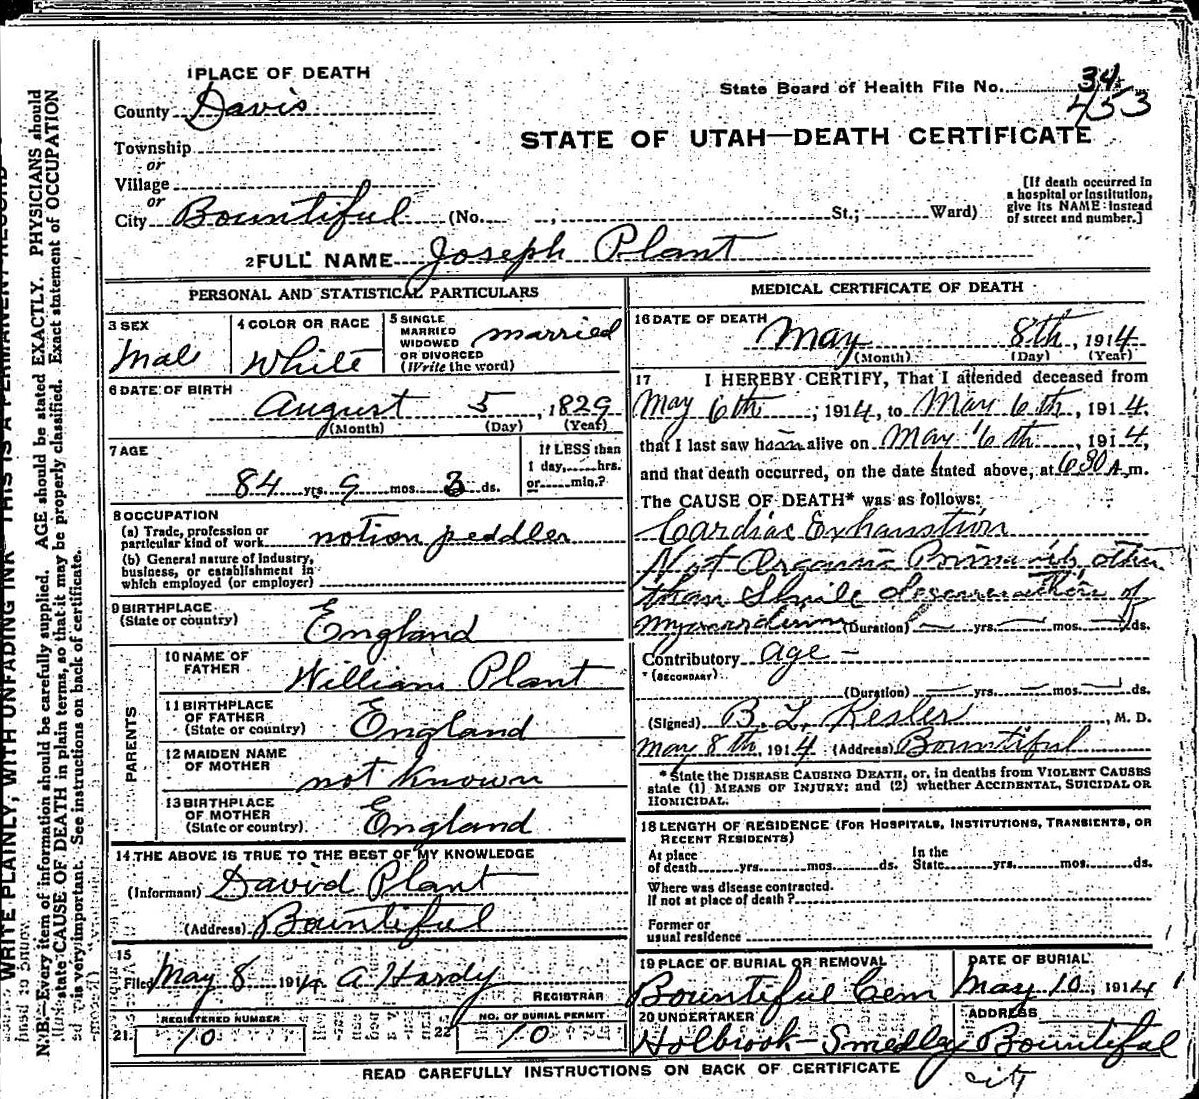 1 PLACE OF DEATH
County Davis
Township
or
Village
or
City Bountiful (No. , St.; Ward)
State Board of Health File No. 34
453
STATE OF UTAH—DEATH CERTIFICATE
[If death occurred in
a hospital or institution,
give its NAME instead
of street and number.]
2 FULL NAME Joseph Plant
PERSONAL AND STATISTICAL PARTICULARS
3 SEX
Male
4 COLOR OR RACE
White
5 SINGLE
MARRIED
WIDOWED
OR DIVORCED
(Write the word)
married
6 DATE OF BIRTH
August 5, 1829
(Month) (Day) (Year)
7 AGE
84 yrs. 9 mos. 3 ds.
If LESS than
1 day,......hrs.
or......min.?
8 OCCUPATION
(a) Trade, profession or
particular kind of work notion peddler
(b) General nature of Industry,
business, or establishment in
which employed (or employer)
9 BIRTHPLACE
(State or country)
England
PARENTS
10 NAME OF
FATHER
William Plant
11 BIRTHPLACE
OF FATHER
(State or country)
England
12 MAIDEN NAME
OF MOTHER
not known
13 BIRTHPLACE
OF MOTHER
(State or country)
England
14 THE ABOVE IS TRUE TO THE BEST OF MY KNOWLEDGE
(Informant) David Plant
(Address) Bountiful
15
Filed May 8 1914 A Hardy
REGISTRAR
21. REGISTERED NUMBER
10
22 NO. OF BURIAL PERMIT
10
MEDICAL CERTIFICATE OF DEATH
16 DATE OF DEATH
May 8th, 1914
(Month) (Day) (Year)
17 I HEREBY CERTIFY, That I attended deceased from
May 6th, 1914, to May 6th, 1914,
that I last saw him alive on May 6th, 1914,
and that death occurred, on the date stated above, at 6 30 A.m.
The CAUSE OF DEATH* was as follows:
Cardiac Exhaustion
Not Organic other
than degeneration of
myocardium (Duration) yrs. mos. ds.
Contributory age
(SECONDARY)
(Duration) yrs. mos. ds.
(Signed) B. L. Kesler, M. D.
May 8th, 1914 (Address) Bountiful
* State the DISEASE CAUSING DEATH, or, in deaths from VIOLENT CAUSES
state (1) MEANS OF INJURY; and (2) whether ACCIDENTAL, SUICIDAL OR
HOMICIDAL.
18 LENGTH OF RESIDENCE (FOR HOSPITALS, INSTITUTIONS, TRANSIENTS, OR
RECENT RESIDENTS)
At place
of death yrs. mos. ds.
In the
State yrs. mos. ds.
Where was disease contracted.
If not at place of death?
Former or
usual residence
19 PLACE OF BURIAL OR REMOVAL
Bountiful Cem
DATE OF BURIAL
May 10, 1914
20 UNDERTAKER
Holbrook-Smedley
ADDRESS
Bountiful
city
READ CAREFULLY INSTRUCTIONS ON BACK OF CERTIFICATE
WRITE PLAINLY, WITH UNFADING INK—THIS IS A PERMANENT RECORD
N. B.—Every item of information should be carefully supplied. AGE should be stated EXACTLY. PHYSICIANS should
state CAUSE OF DEATH in plain terms, so that it may be properly classified. Exact statement of OCCUPATION
is very important. See instructions on back of certificate.